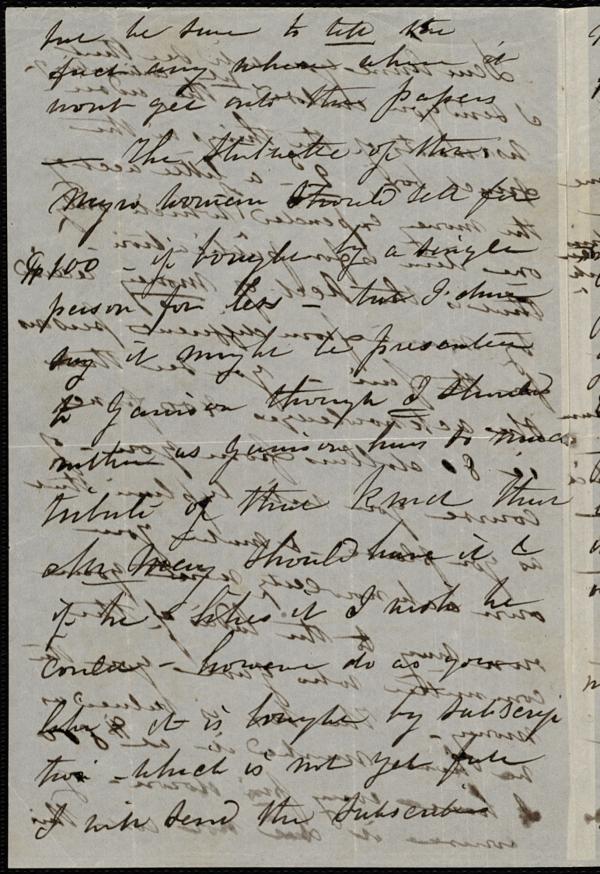 but be sure to tell the
fact any where where it
wont get into the papers
— The Statuette of the
Negro woman should sell for
$100 – if bought by a single
person for less – but I
say it might be presented
to Garrison though I should
rather as Garrison has so much
tribute of that kind that
Mr May should have it &
if he likes it I wish he
could – however do as you
like & it is bought by subscrip
tion – which is not yet full
I will send the Subscribers